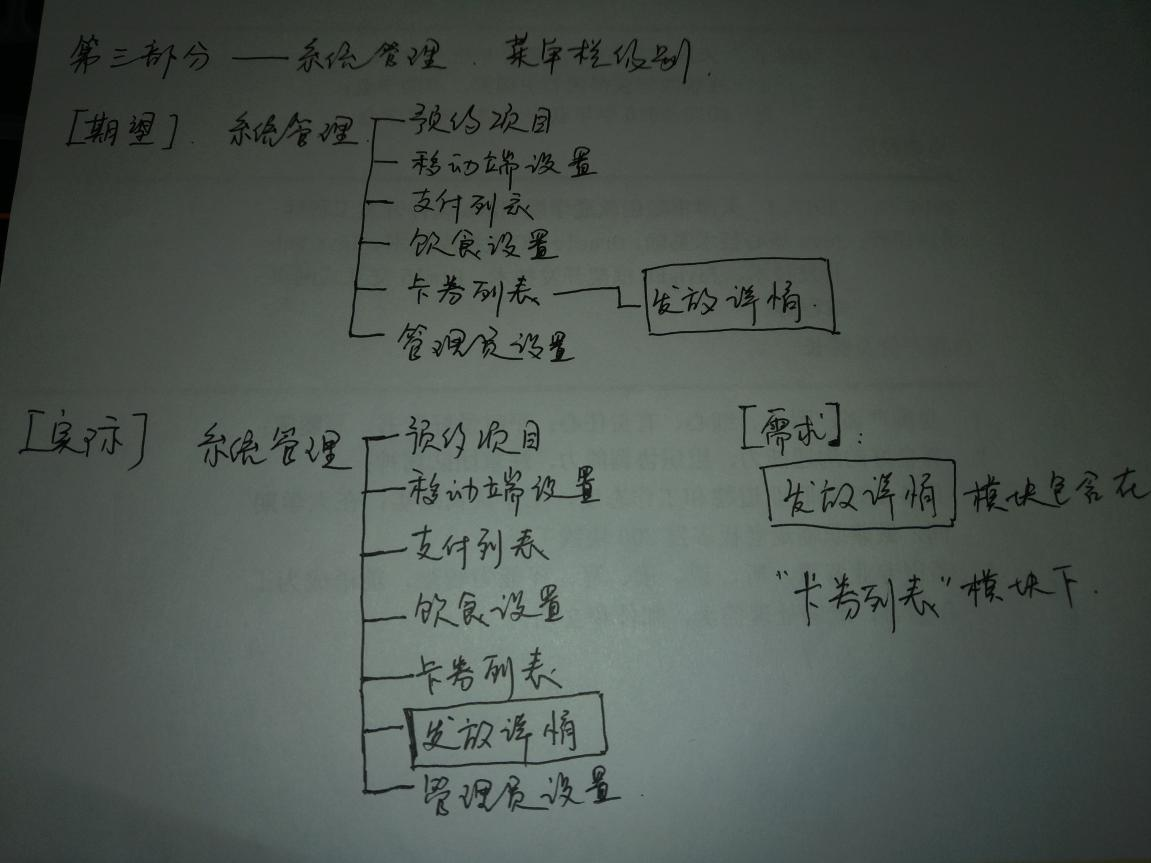 第三部分 —— 系统管理. 菜单栏级别.
[期望]. 系统管理
预约项目
移动端设置
支付列表
饮食设置
卡券列表
发放详情.
管理员设置
[实际] 系统管理
预约项目
移动端设置
支付列表
饮食设置
卡券列表
发放详情
管理员设置.
[需求]:
发放详情 模块包含在
"卡券列表"模块下.